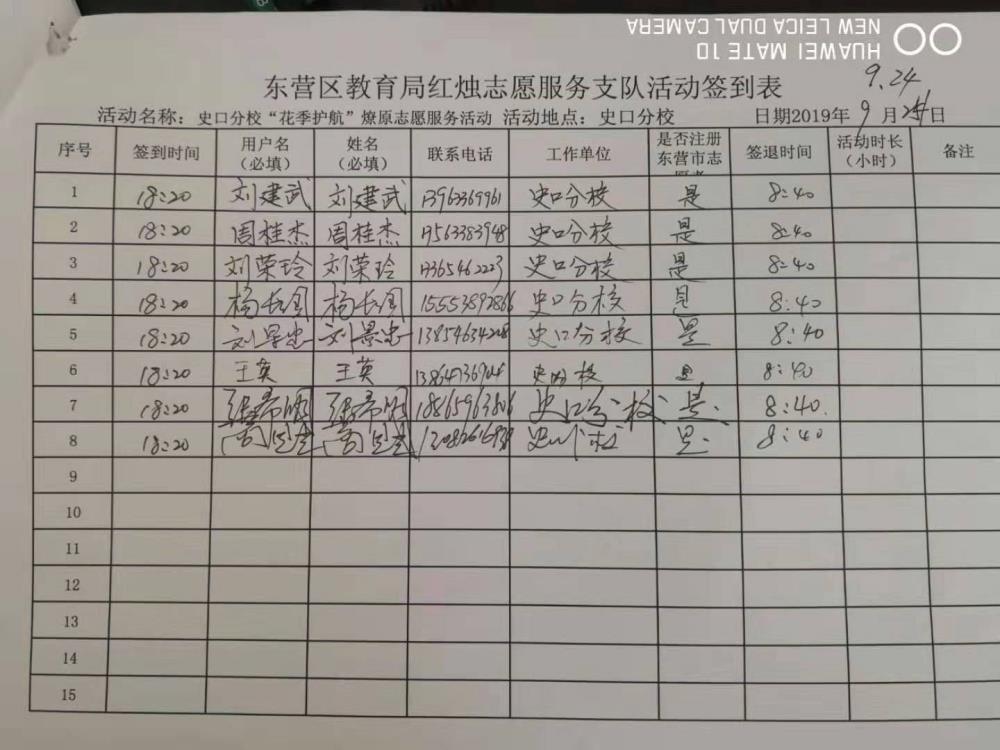 HUAWEI MATE 10
NEW LEICA DUAL CAMERA
9.24
东营区教育局红烛志愿服务支队活动签到表
活动名称：史口分校“花季护航”燎原志愿服务活动 活动地点：史口分校 日期2019年9月24日
序号 签到时间 用户名（必填） 姓名（必填） 联系电话 工作单位 是否注册东营市志愿者 签退时间 活动时长（小时） 备注
1 18:20 刘建武 刘建武 13963369961 史口分校 是 8:40
2 18:20 周桂杰 周桂杰 史口分校 是 8:40
3 18:20 刘荣玲 刘荣玲 13365462223 史口分校 是 8:40
4 18:20 史口分校 是 8:40
5 18:20 刘景忠 刘景忠 13854634228 史口分校 是 8:40
6 18:20 王英 王英 校 是 8:40
7 18:20 史口分校 是 8:40
8 18:20 是 8:40
9
10
11
12
13
14
15